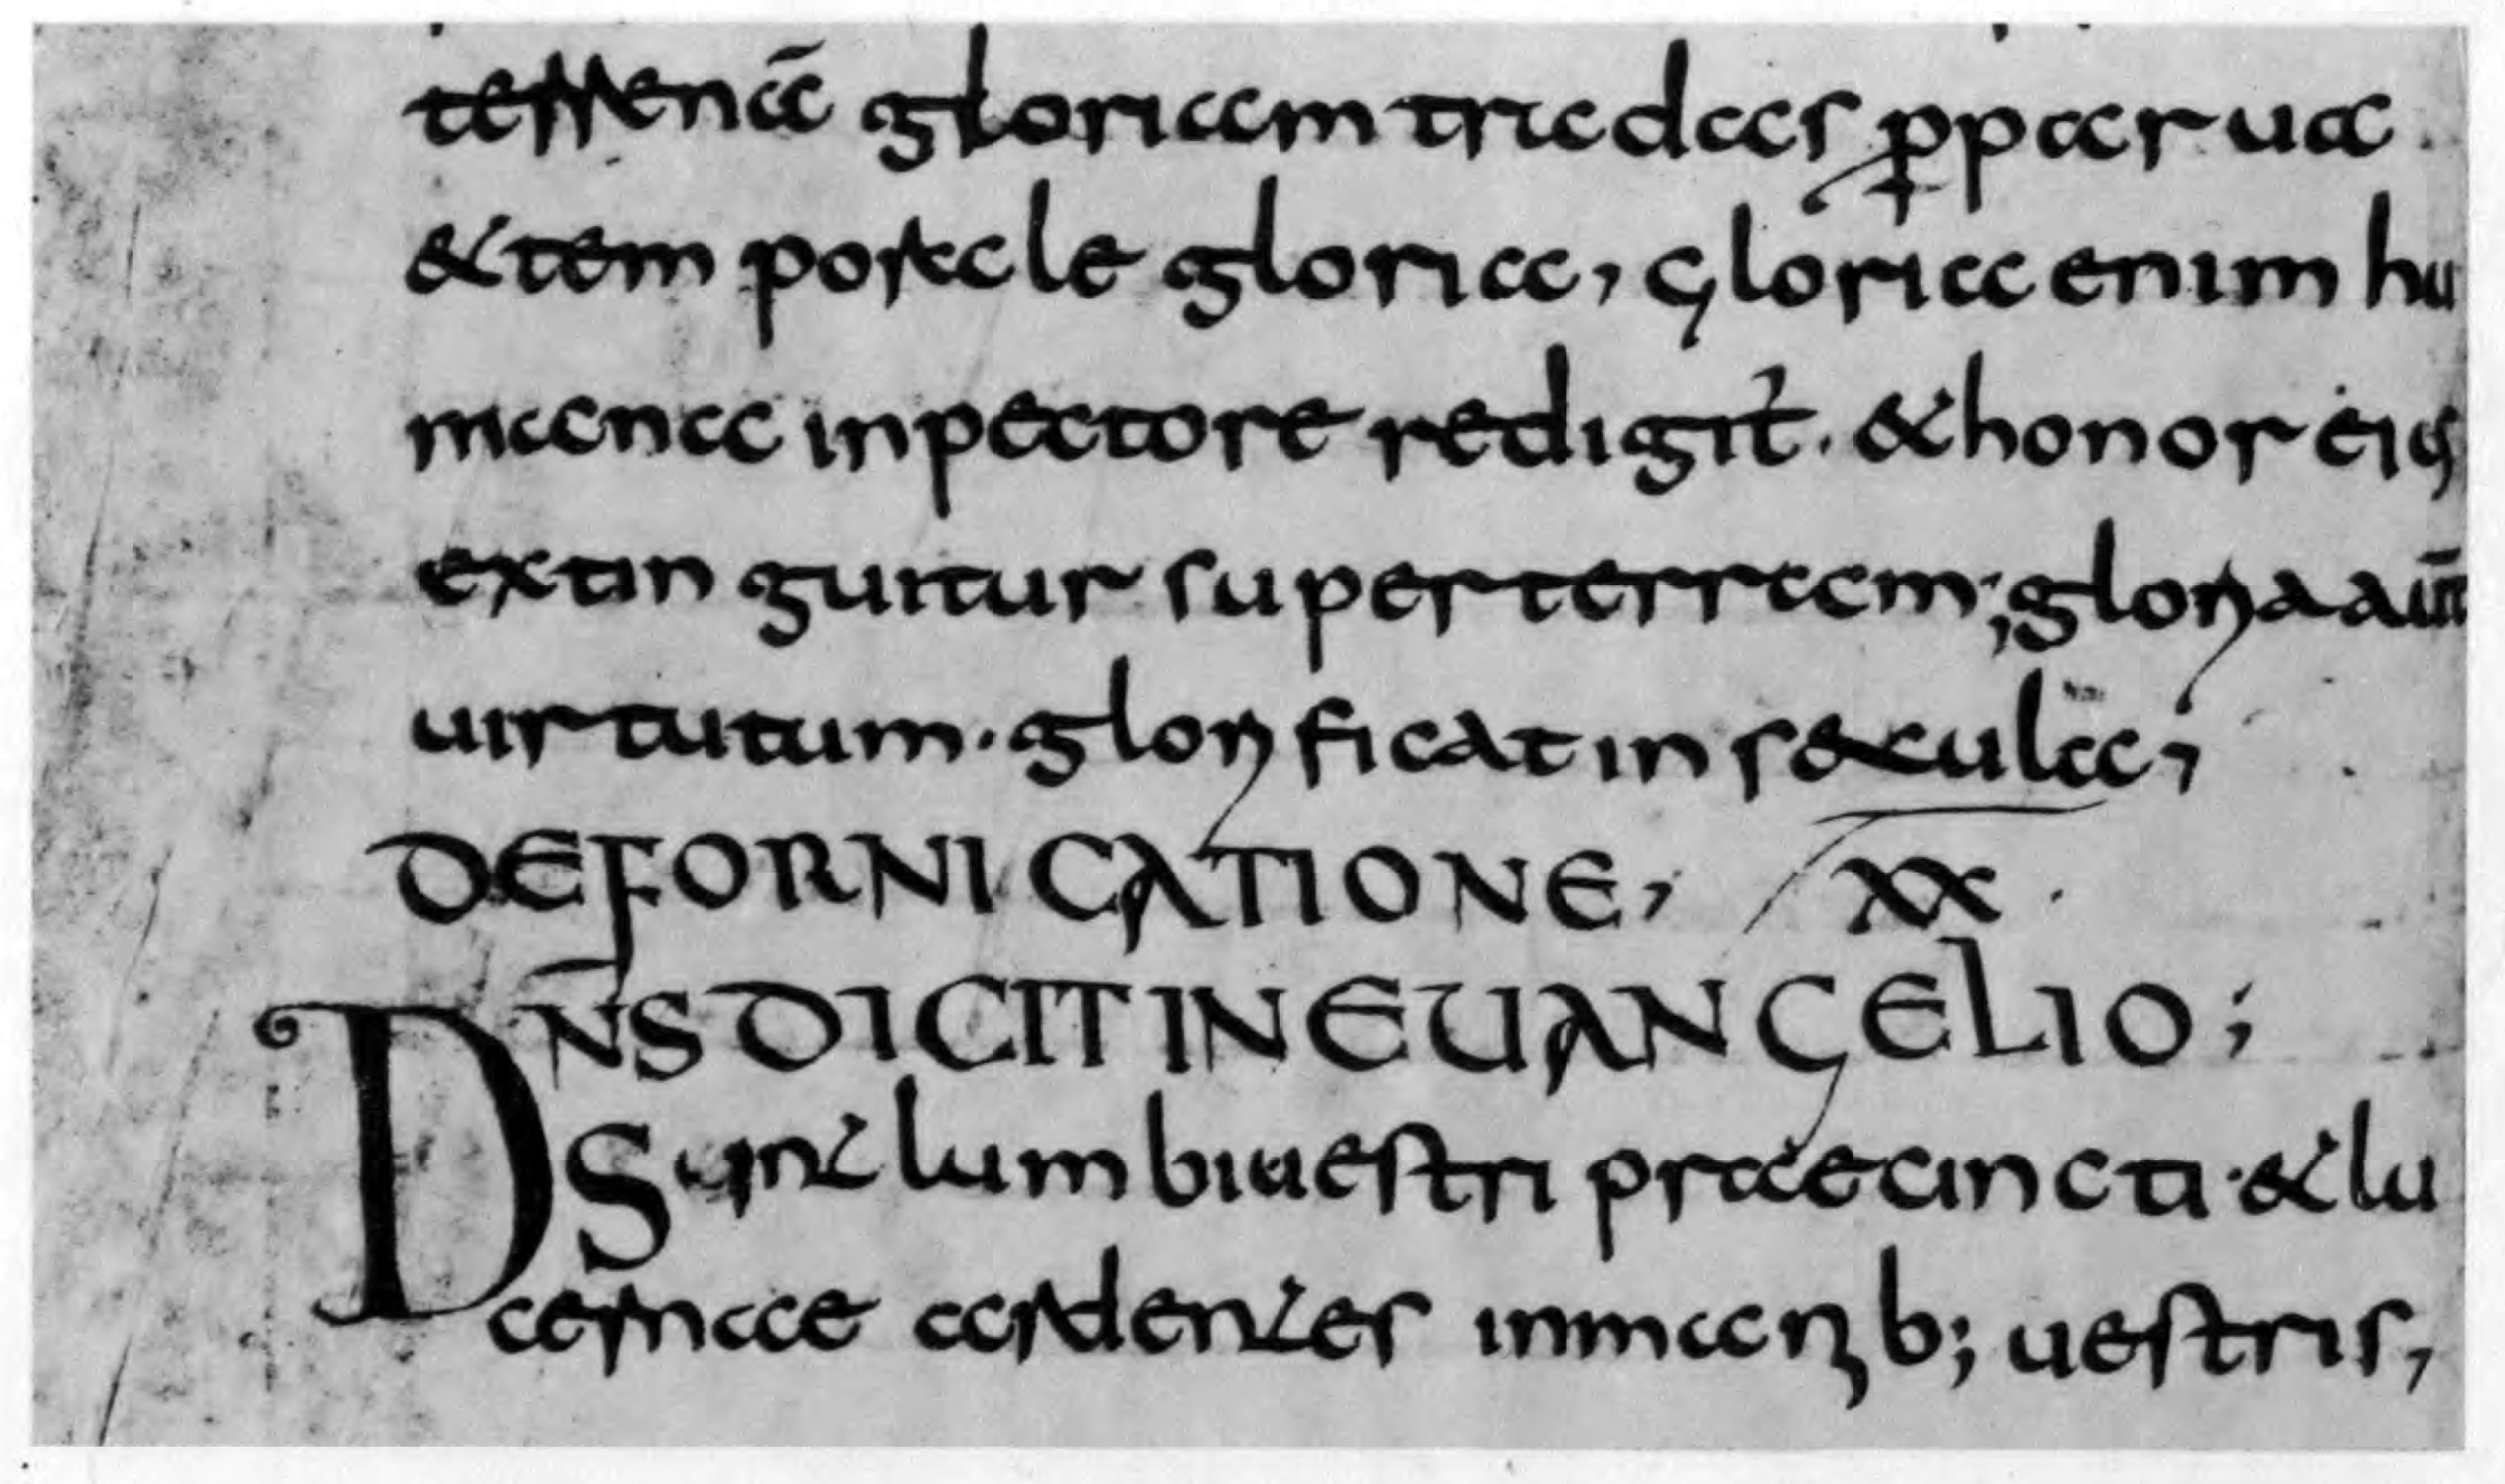 terrenā gloriam tradas ꝓparua
&temporale gloria, gloria enim hu
mana inpectore redigit̃. &honor eiꝰ
extinguitur superterram; gloria aūt
uirtutum. glorificat in s&cula,
DEFORNICATIONE, XX.
DN̄S DICIT IN EUANGELIO;
Sint lumbi uestri praecincti. &lu
cernae ardentes inmanib; uestris,